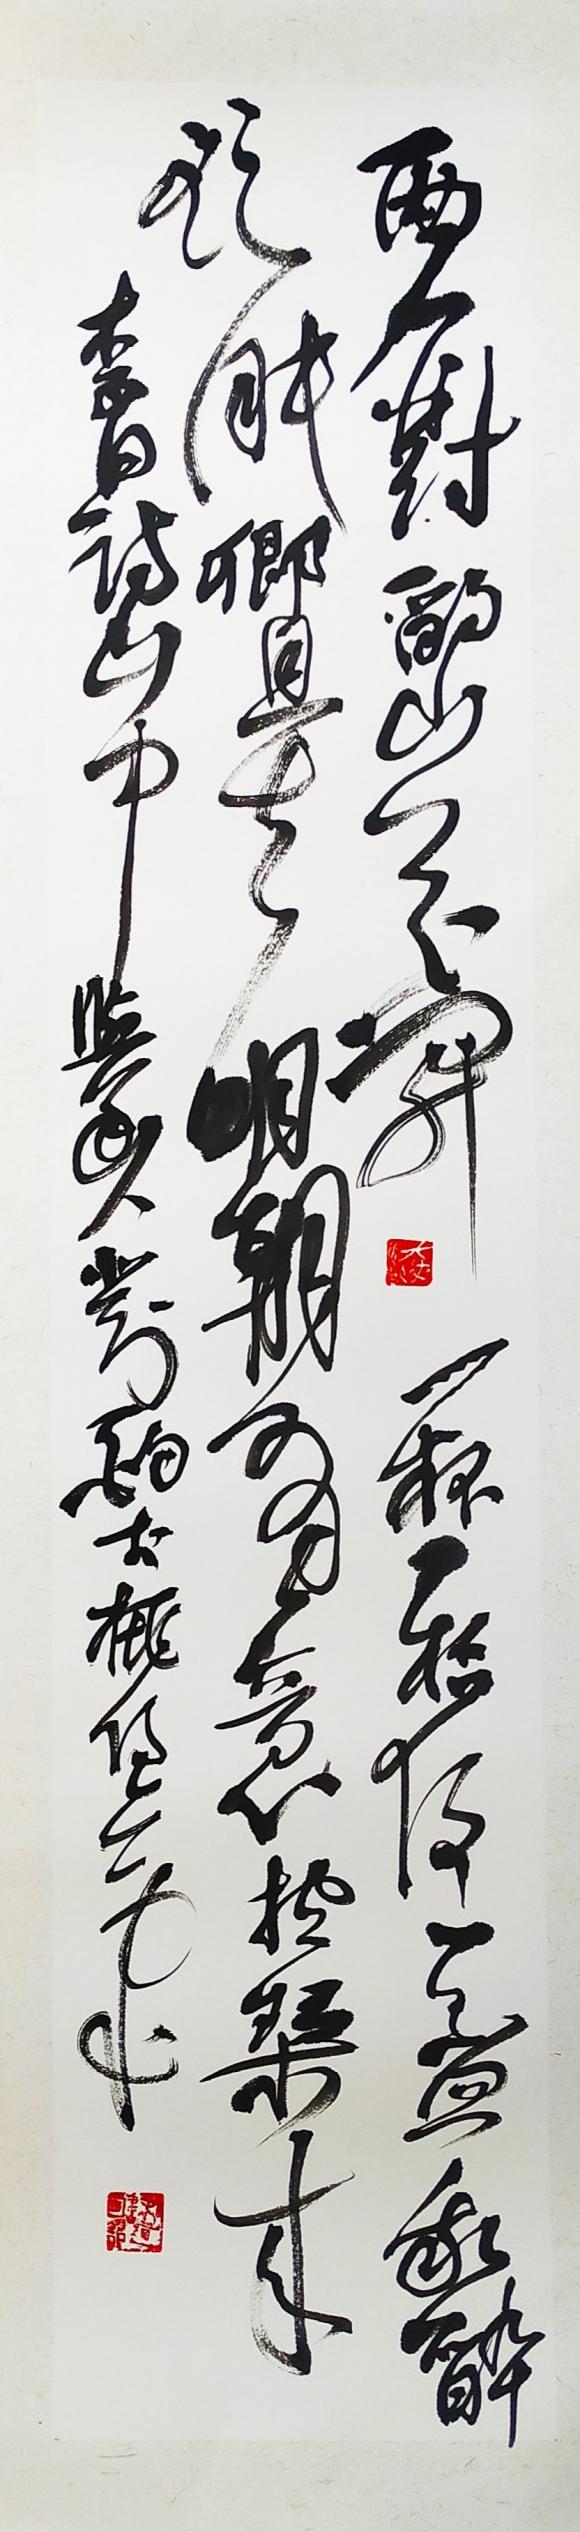 兩人對酌山花開一杯一杯復一盃我醉
欲眠卿且去明朝有意抱琴來
李白詩山中與幽人對酌